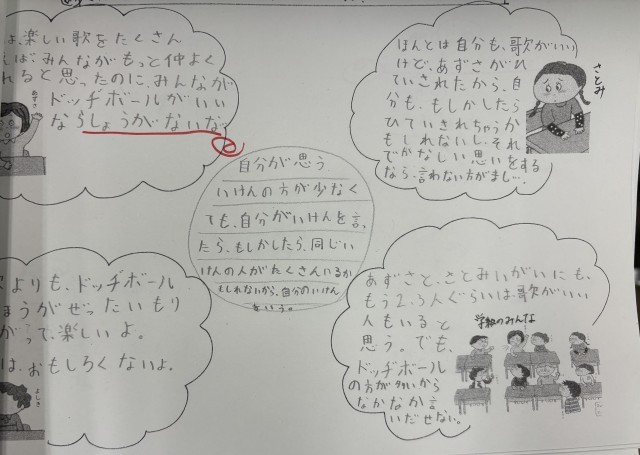 楽しい歌をたくさん
ば、みんながもっと仲よく
れると思ったのに、みんなが
ドッヂボールがいい
ならしょうがないな
あずさ
ほんとは自分も、歌がいい
けど、あずさがひ
ていされたから、自
分も、もしかしたら
ひていきれちゃうか
もしれないし、それ
でかなしい思いをする
なら、言わない方がまし…。
さとみ
自分が思う
いけんの方が少なく
ても、自分がいけんを言っ
たら、もしかしたら、同じい
けんの人がたくさんいるか
もしれないから、自分のいけん
をいう。
よりも、ドッヂボール
ほうがぜったいもり
がって、楽しいよ。
は、おもしろくないよ。
よしき
あずさと、さとみいがいにも、
もう2、3人ぐらいは、歌がいい
人もいると
思う。でも、
ドッヂボール
の方が多いから
なかなか言
いだせない。
学級のみんな